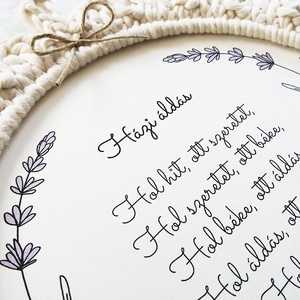 Házi áldás
Hol hit, ott szeretet,
Hol szeretet, ott béke,
Hol béke, ott áldás
Hol áldás, ott
Hol